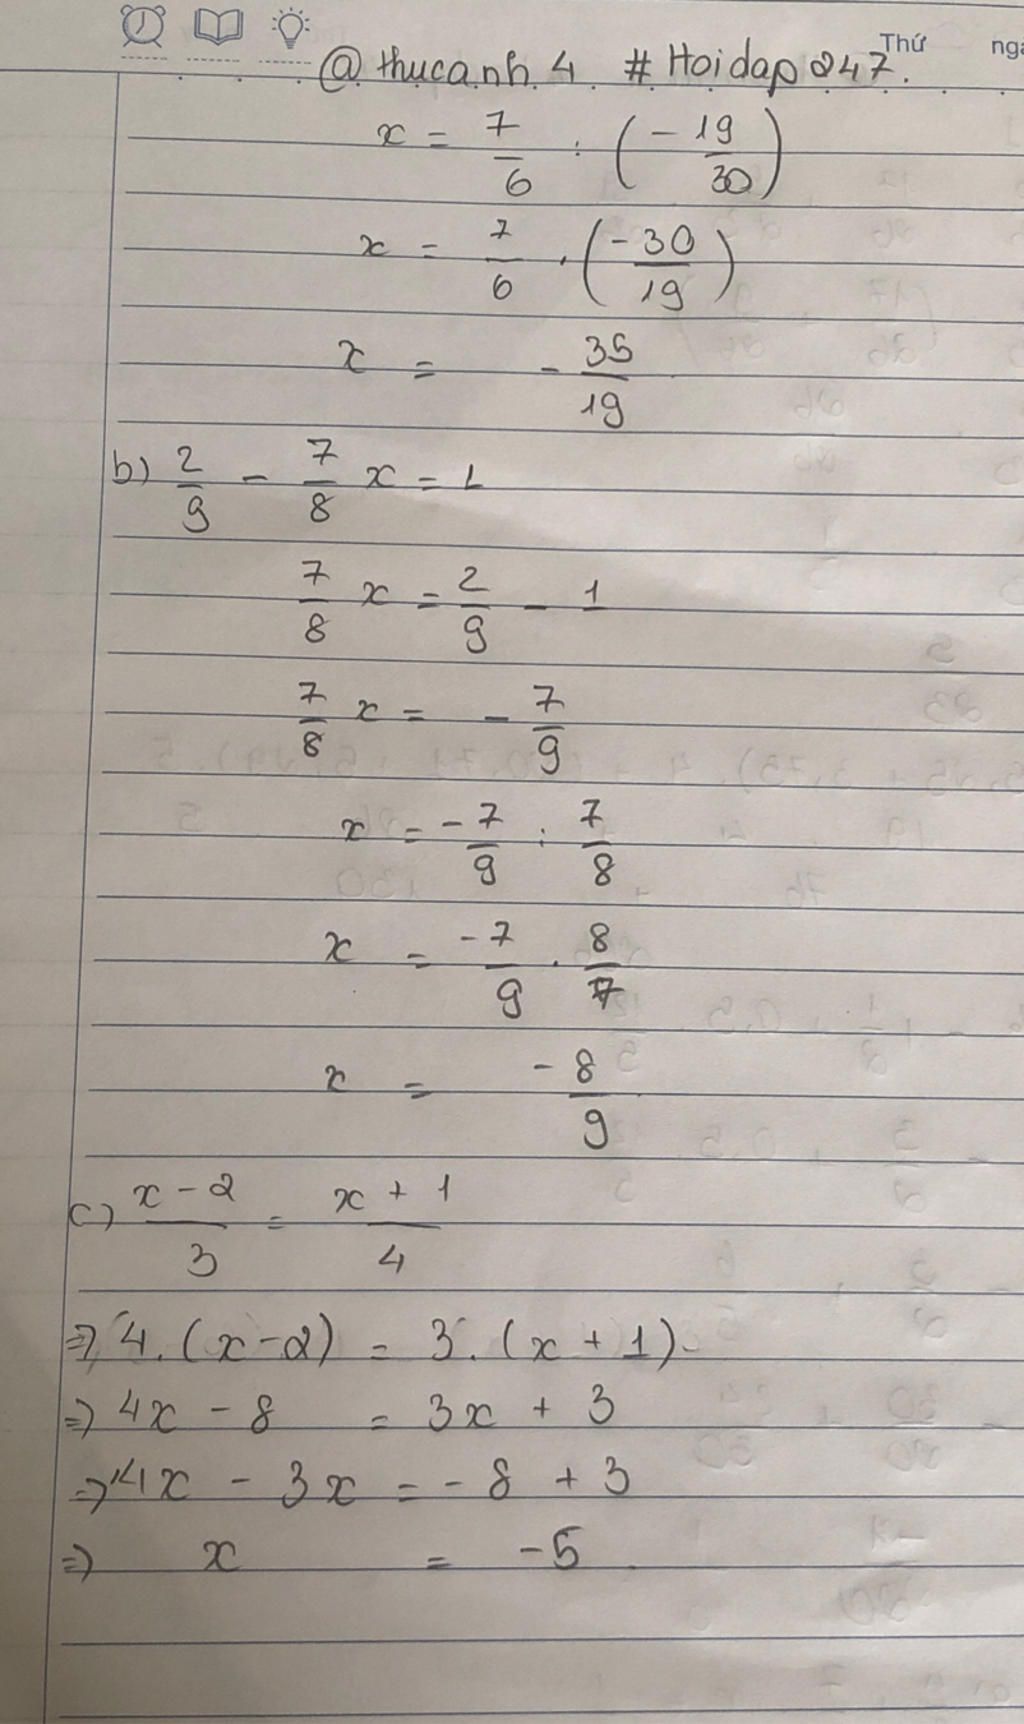 Thứ
@ thucanh 4 # Hoidap 247.
x = 7/6 : (-19/30)
x = 7/6 . (-30/19)
x = -35/19
b) 2/9 - 7/8 x = 1
7/8 x = 2/9 - 1
7/8 x = -7/9
x = -7/9 : 7/8
x = -7/9 . 8/7
x = -8/9
c) x-2/3 = x+1/4
=> 4.(x-2) = 3.(x+1)
=> 4x - 8 = 3x + 3
=> 4x - 3x = -8 + 3
=> x = -5